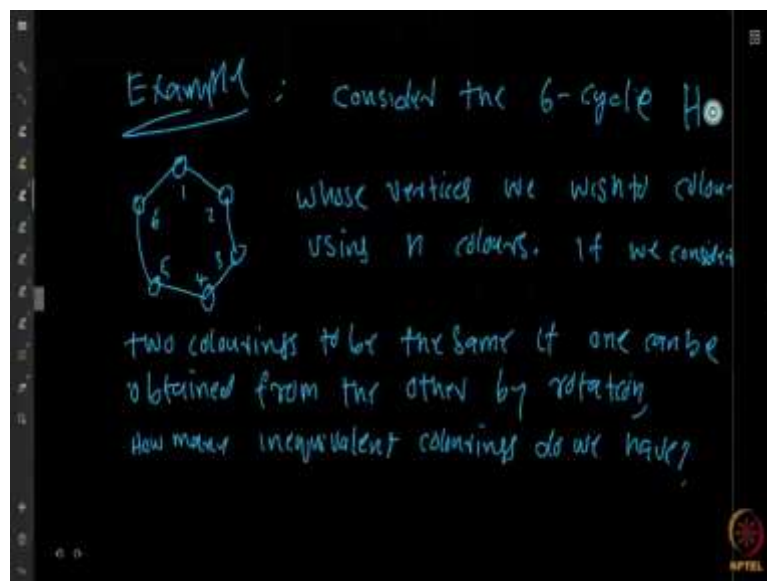 Example : Consider the 6-cycle H
1
2
3
4
5
6
whose vertices we wish to colour
using n colours. If we consider
two colourings to be the same if one can be
obtained from the other by rotation,
How many inequivalent colourings do we have?
NPTEL